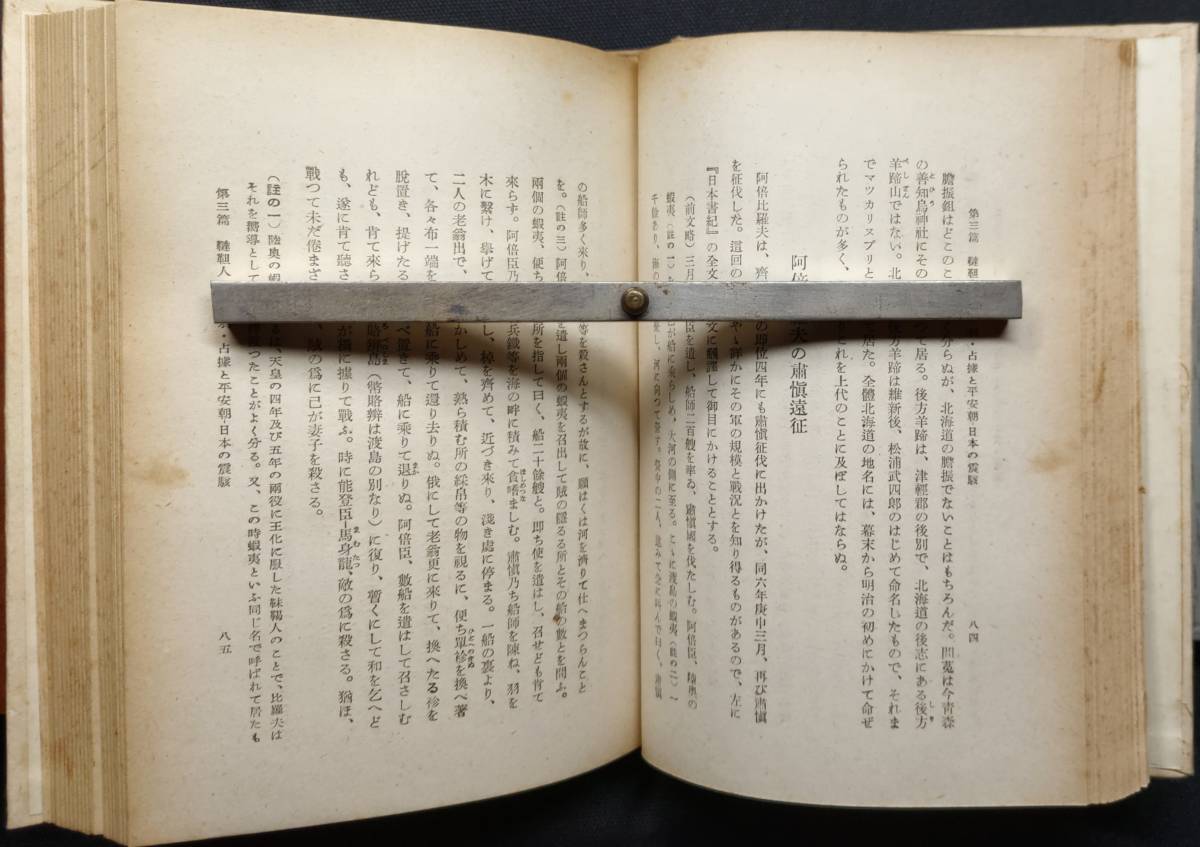 第三篇 韃靼 占據と平安朝日本の震駭 八四
膽振鉏はどこのこ 分らぬが、北海道の膽振でないことはもちろんだ。問菟は今青森
の善知鳥神社にその つて居る。後方羊蹄は、津輕郡の後別で、北海道の後志にある後方
羊蹄山ではない。北 方羊蹄は維新後、松浦武四郎のはじめて命名したもので、それま
でマツカリスプリと 居た。全體北海道の地名には、幕末から明治の初めにかけて命ぜ
られたものが多く、 これを上代のことに及ぼしてはならぬ。
阿倍 夫の肅愼遠征
阿倍比羅夫は、齊 の即位四年にも肅愼征伐に出かけたが、同六年庚申三月、再び肅愼
を征伐した。這回の やゝ詳かにその軍の規模と戰況とを知り得るものがあるので、左に
『日本書紀』の全文 文に飜譯して御目にかけることとする。
(前文略)三月 臣を遣し、船師二百艘を率ゐ、肅愼國を伐たしむ。阿倍臣、陸奧の
蝦夷(註の一)を 己が船に乘らしめ、大河の側に至る。こゝに渡島の蝦夷(註の二)一
千餘あり、海の 河に向つて營す。營中の二人、進みて急に叫んで曰く、肅愼
の船師多く來り、 等を殺さんとするが故に、願はくは河を濟りて仕へまつらんこと
を。(註の三)阿倍 を遣し兩個の蝦夷を召出して賊の隱るる所とその船の數とを問ふ。
兩個の蝦夷、便ち 所を指して曰く、船二十餘艘と。即ち使を遣はし、召せども肯て
來らず。阿倍臣乃 兵鐵等を海の畔に積みて貪嗜ましむ。肅愼乃ち船師を陳ね、羽を
木に繫け、擧げて し、棹を齊めて、近づき來り、淺き處に停まる。一船の裏より、
二人の老翁出で、 かしめて、熟ら積む所の綵帛等の物を視るに、便ち單衫を換へ著
て、各々布一端を 船に乘りて還り去りぬ。俄にして老翁更に來りて、換へたる衫を
脫置き、提げたる べ置き、船に乘りて退りぬ。阿倍臣、數船を遣はして召さしむ
れども、肯て來ら 賂辨島(幣賂辨は渡島の別なり)に復り、暫くにして和を乞へど
も、遂に肯て聽さ が柵に據りて戰ふ。時に能登臣―馬身龍、敵の爲に殺さる。猶ほ、
戰つて未だ倦まざ 、賊の爲に己が妻子を殺さる。
(註の一)陸奧の蝦 は、天皇の四年及び五年の兩役に王化に服した靺鞨人のことで、比羅夫は
それを嚮導として 伐つたことがよく分る。又、この時蝦夷といふ同じ名で呼ばれて居たも
第三篇 韃靼人 ・占據と平安朝日本の震駭 八五